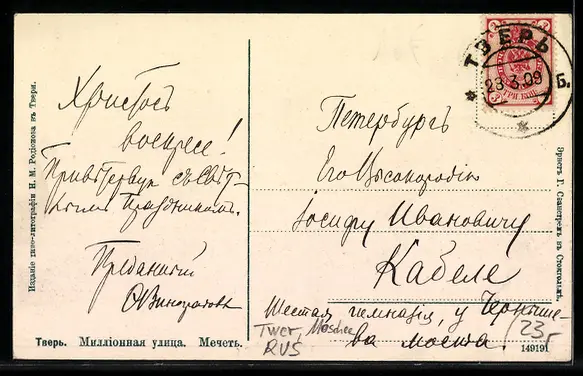 Христосъ
воскресе!
Привѣтствую съ свѣт-
лымъ праздникомъ.
Преданный
О. Виноградовъ
Петербургъ
Его Высокородію
Іосифу Ивановичу
Кабеле
Шестая гимназія, у Черныше-
ва моста.
ТВЕРЬ
28.3.09
Б.
ТРИ КОП.
Twer, Moschee
RUS
23,-
Тверь. Милліонная улица. Мечеть.
149191
Изданіе типо-литографіи Н. М. Родіонова въ Твери.
Эрнстъ Г. Сванстремъ въ Стокгольмѣ.